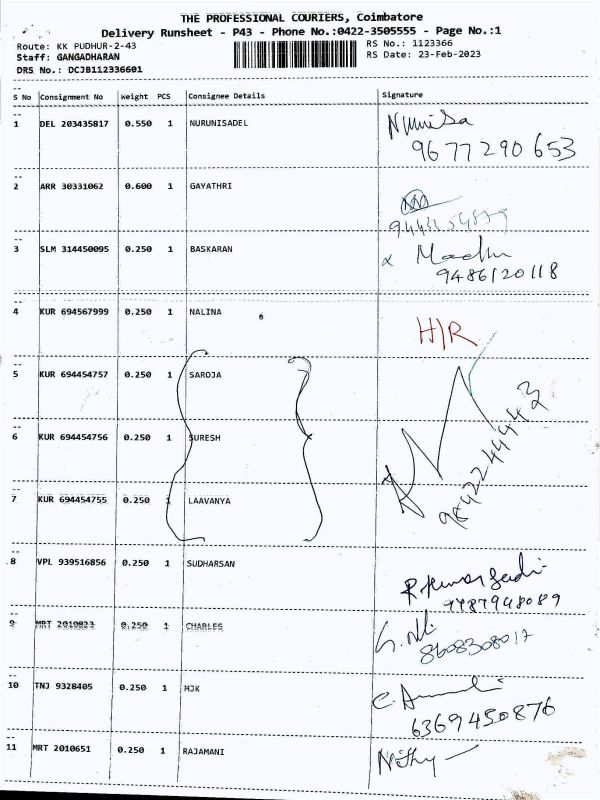 THE PROFESSIONAL COURIERS, Coimbatore
Delivery Runsheet - P43 - Phone No.:0422-3505555 - Page No.:1
Route: KK PUDHUR-2-43
RS No.: 1123366
Staff: GANGADHARAN
RS Date: 23-Feb-2023
DRS No.: DCJB112336601
S No Consignment No Weight PCS Consignee Details Signature
1 DEL 203435817 0.550 1 NURUNISADEL Nurnisa
9677290653
2 ARR 30331062 0.600 1 GAYATHRI
3 SLM 314450095 0.250 1 BASKARAN x Madhu
9486120118
4 KUR 694567999 0.250 1 NALINA H/R
5 KUR 694454757 0.250 1 SAROJA
6 KUR 694454756 0.250 1 SURESH
9842244442
7 KUR 694454755 0.250 1 LAAVANYA
8 VPL 939516856 0.250 1 SUDHARSAN
9787948089
9 MRT 2010823 0.250 1 CHARLES
8608308017
10 TNJ 9328405 0.250 1 MJK
6369450876
11 MRT 2010651 0.250 1 RAJAMANI Nithy